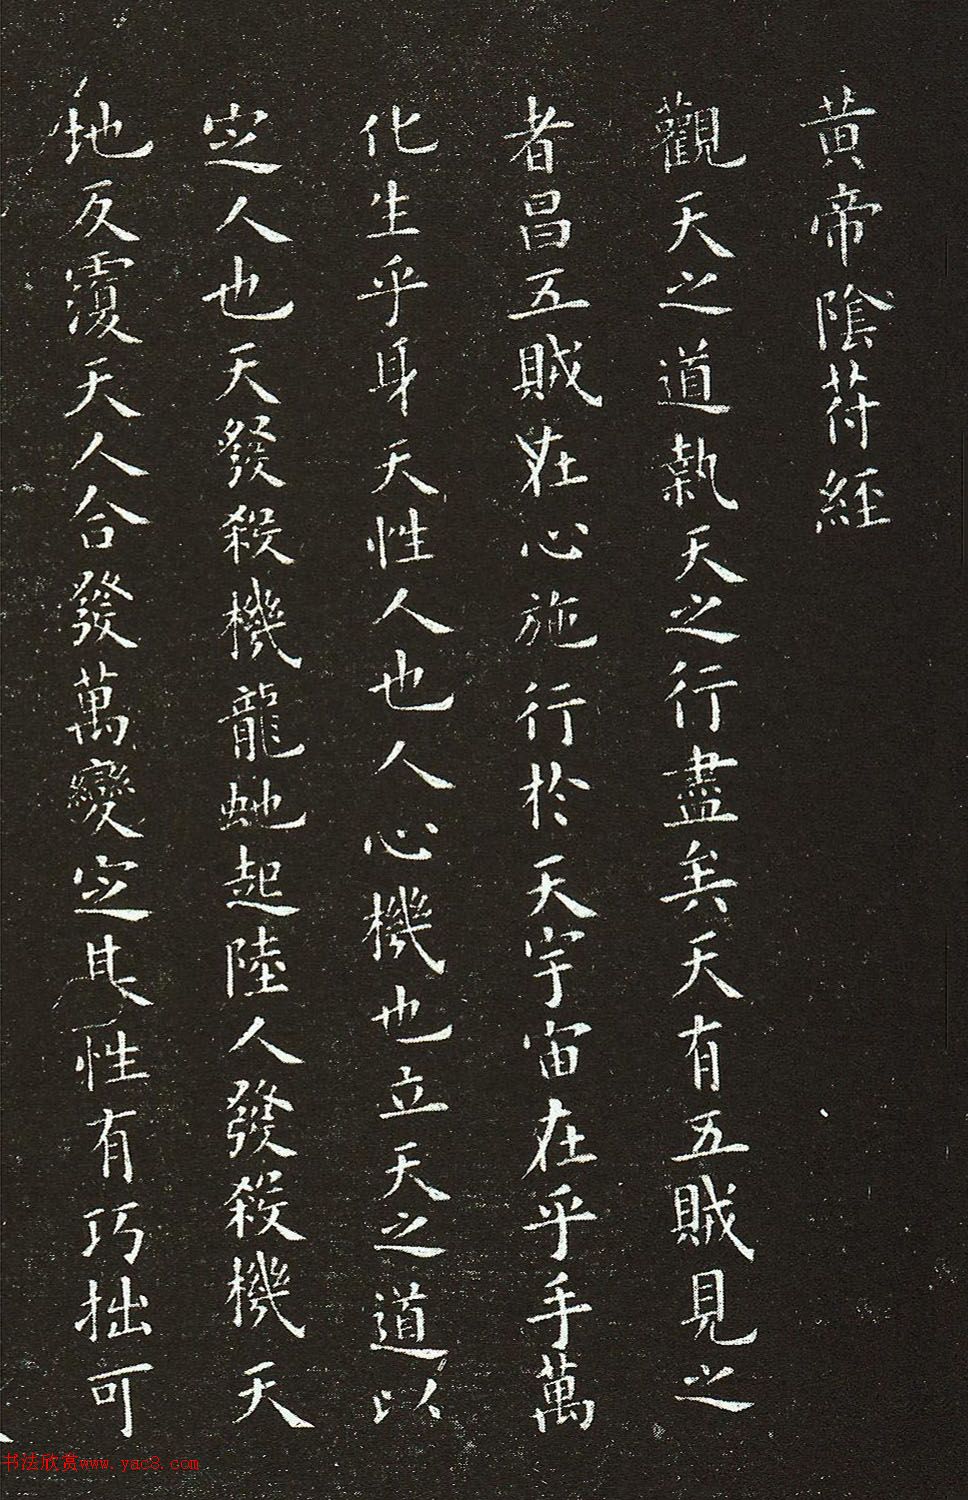 黃帝陰符經
觀天之道執天之行盡矣天有五賊見之
者昌五賊在心施行於天宇宙在乎手萬
化生乎身天性人也人心機也立天之道以
定人也天發殺機龍虵起陸人發殺機天
地反覆天人合發萬變定基性有巧拙可
书法欣赏www.yac8.com